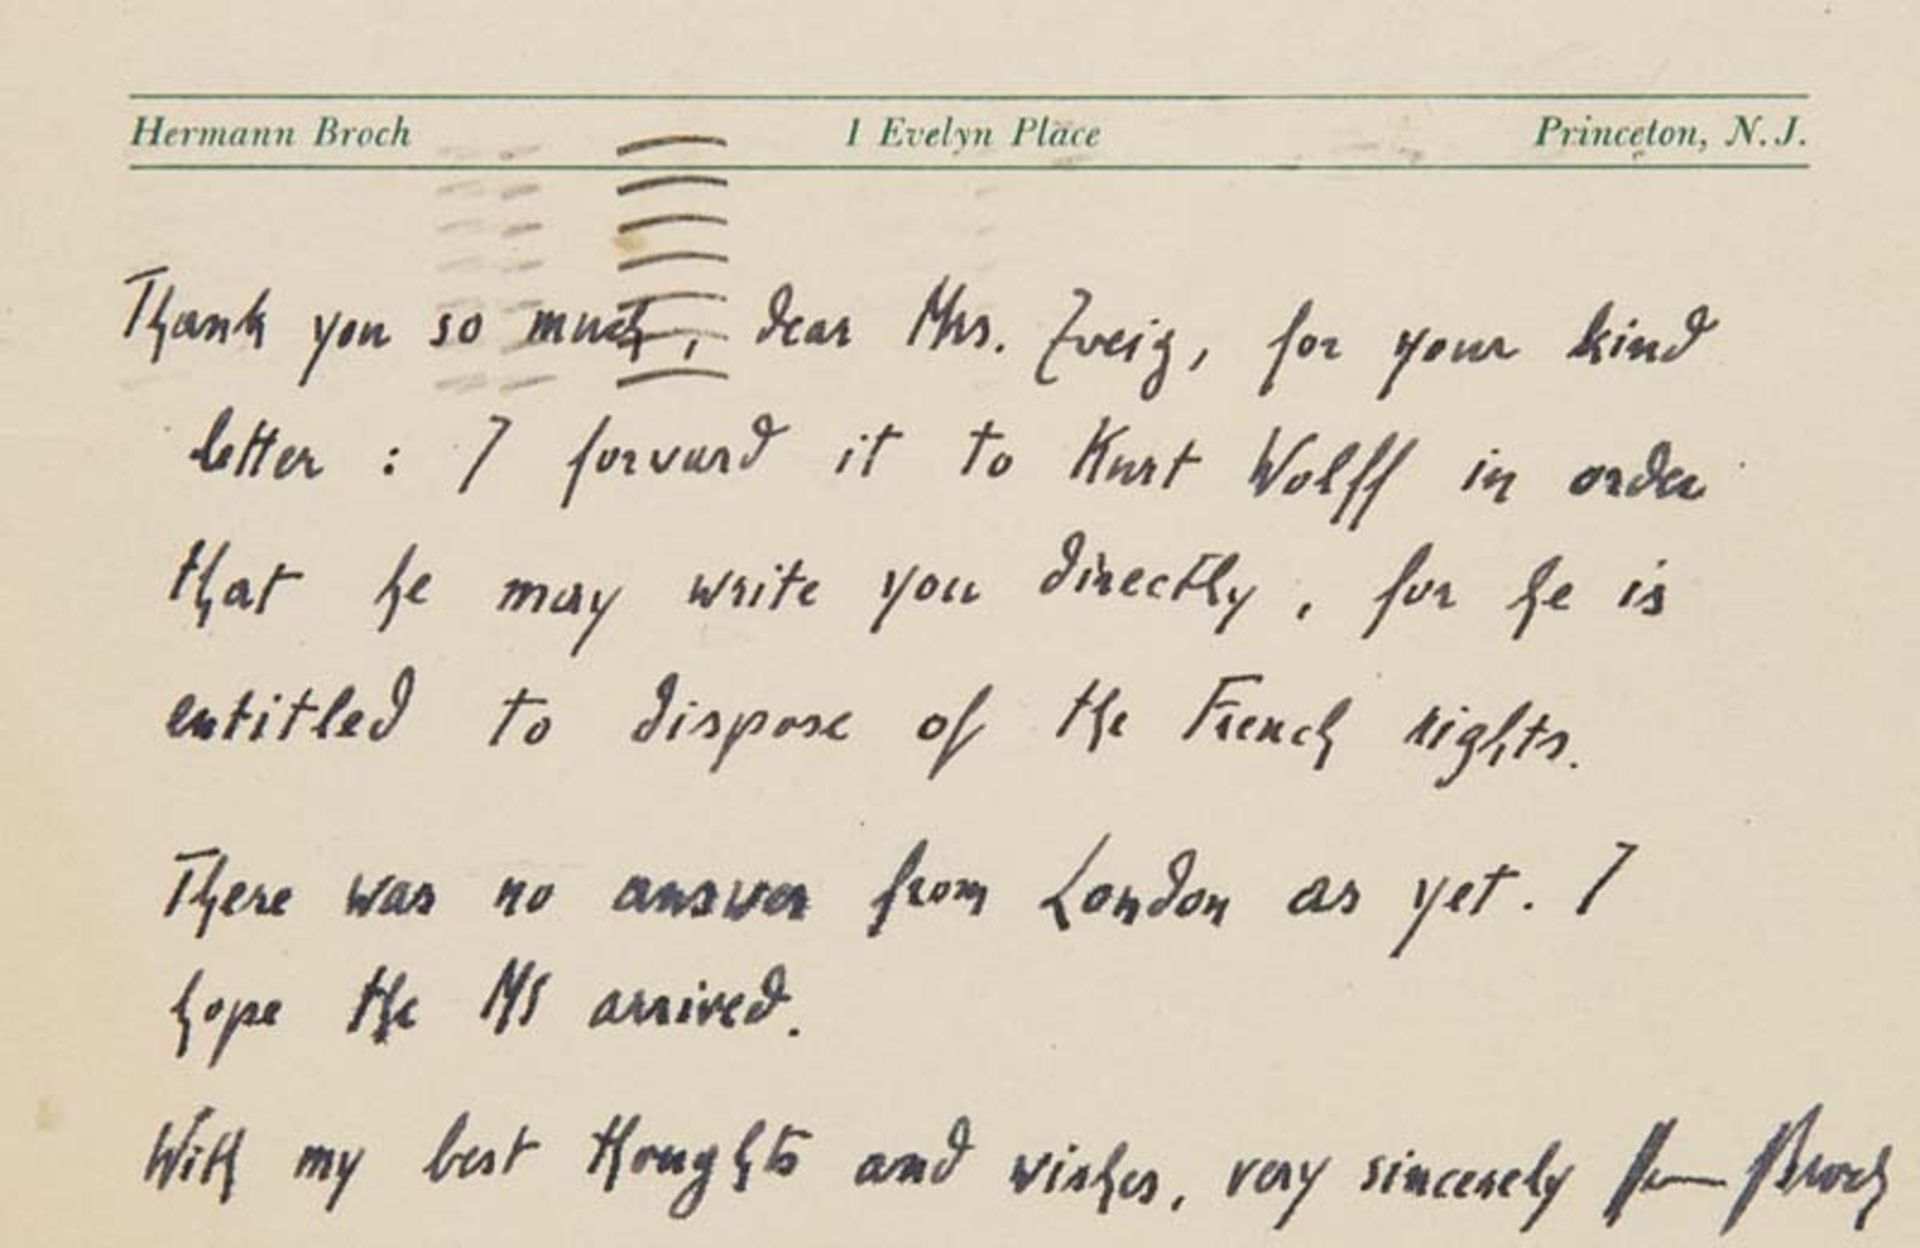 Hermann Broch 1 Evelyn Place Princeton, N.J.
Thank you so much, dear Mrs. Zweig, for your kind
letter : I forward it to Kurt Wolff in order
that he may write you directly, for he is
entitled to dispose of the French rights.
There was no answer from London as yet. I
hope the MS arrived.
With my best thoughts and wishes, very sincerely Hermann Broch